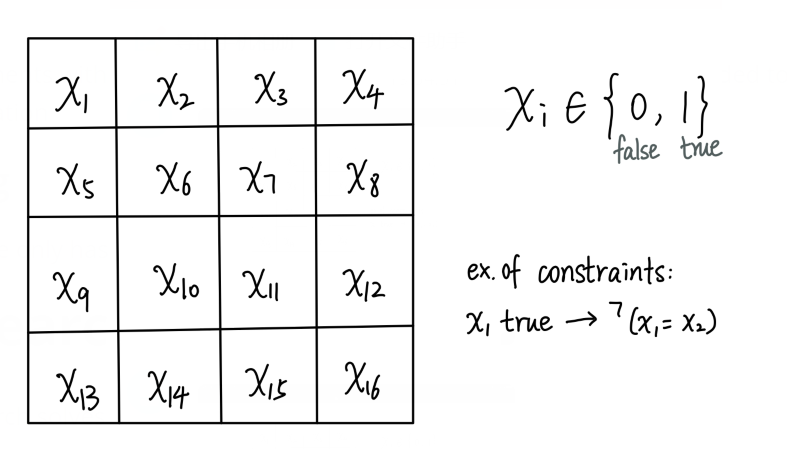 x₁ x₂ x₃ x₄
x₅ x₆ x₇ x₈
x₉ x₁₀ x₁₁ x₁₂
x₁₃ x₁₄ x₁₅ x₁₆
xᵢ ∈ {0, 1}
false true
ex. of constraints:
x₁ true → ¬(x₁ = x₂)